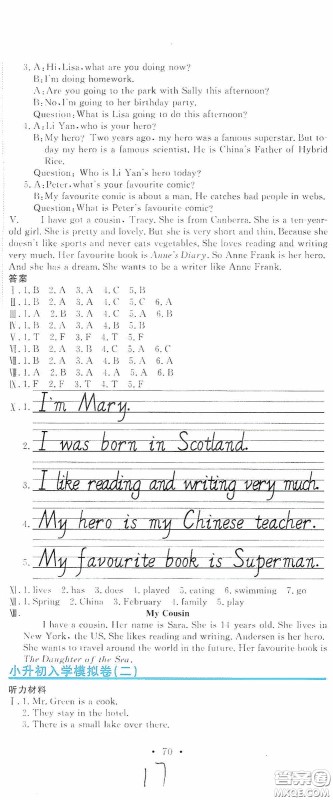 3. A: Hi, Lisa, what are you doing now?
B: I'm doing homework.
A: Are you going to the park with Sally this afternoon?
B: No, I'm going to her birthday party.
Question: What is Lisa going to do this afternoon?
4. A: Li Yan, who is your hero?
B: My hero? Two years ago, my hero was a famous superstar. But to-
day my hero is a famous scientist. He is China's Father of Hybrid
Rice.
Question: Who is Li Yan's hero today?
5. A: Peter, what's your favourite comic?
B: My favourite comic is about a man. He catches bad people in webs.
Question: What is Peter's favourite comic?
Ⅴ. I have got a cousin, Tracy. She is from Canberra. She is a ten-year-
old girl. She is pretty and lovely. But she is very short and thin. Because she
doesn't like sports and never eats vegetables. She loves reading and writing
very much. Her favourite book is Anne's Diary. So Anne Frank is her hero.
And she has a dream. She wants to be a writer like Anne Frank.
答案
Ⅰ. 1. B 2. A 3. A 4. C 5. B
Ⅱ. 1. B 2. A 3. A 4. C 5. C 6. A
Ⅲ. 1. B 2. A 3. A 4. C 5. B
Ⅳ. 1. B 2. C 3. A 4. B 5. B
Ⅴ. 1. T 2. F 3. F 4. T 5. F
Ⅵ. 1. A 2. B 3. C 4. B 5. A 6. C
Ⅶ. 1. A 2. B 3. A 4. B 5. C 6. B
Ⅷ. 1. B 2. C 3. A 4. C 5. A
Ⅸ. 1. F 2. F 3. T 4. T 5. F
Ⅹ. 1. I'm Mary.
2. I was born in Scotland.
3. I like reading and writing very much.
4. My hero is my Chinese teacher.
5. My favourite book is Superman.
Ⅺ. 1. lives 2. has 3. does 4. played 5. eating 6. swimming 7. go
Ⅻ. 1. Spring 2. China 3. February 4. family 5. play
My Cousin
I have a cousin. Her name is Sara. She is 14 years old. She lives in
New York, the US. She likes reading and writing. Andersen is her hero.
She wants to travel around the world in the future. Her favourite book is
The Daughter of the Sea.
小升初入学模拟卷(二)
听力材料
Ⅰ. 1. Mr. Green is a cook.
2. They stay in the hotel.
3. There is a small lake over there.
· 70 ·
17
答案圈
MXQE.COM